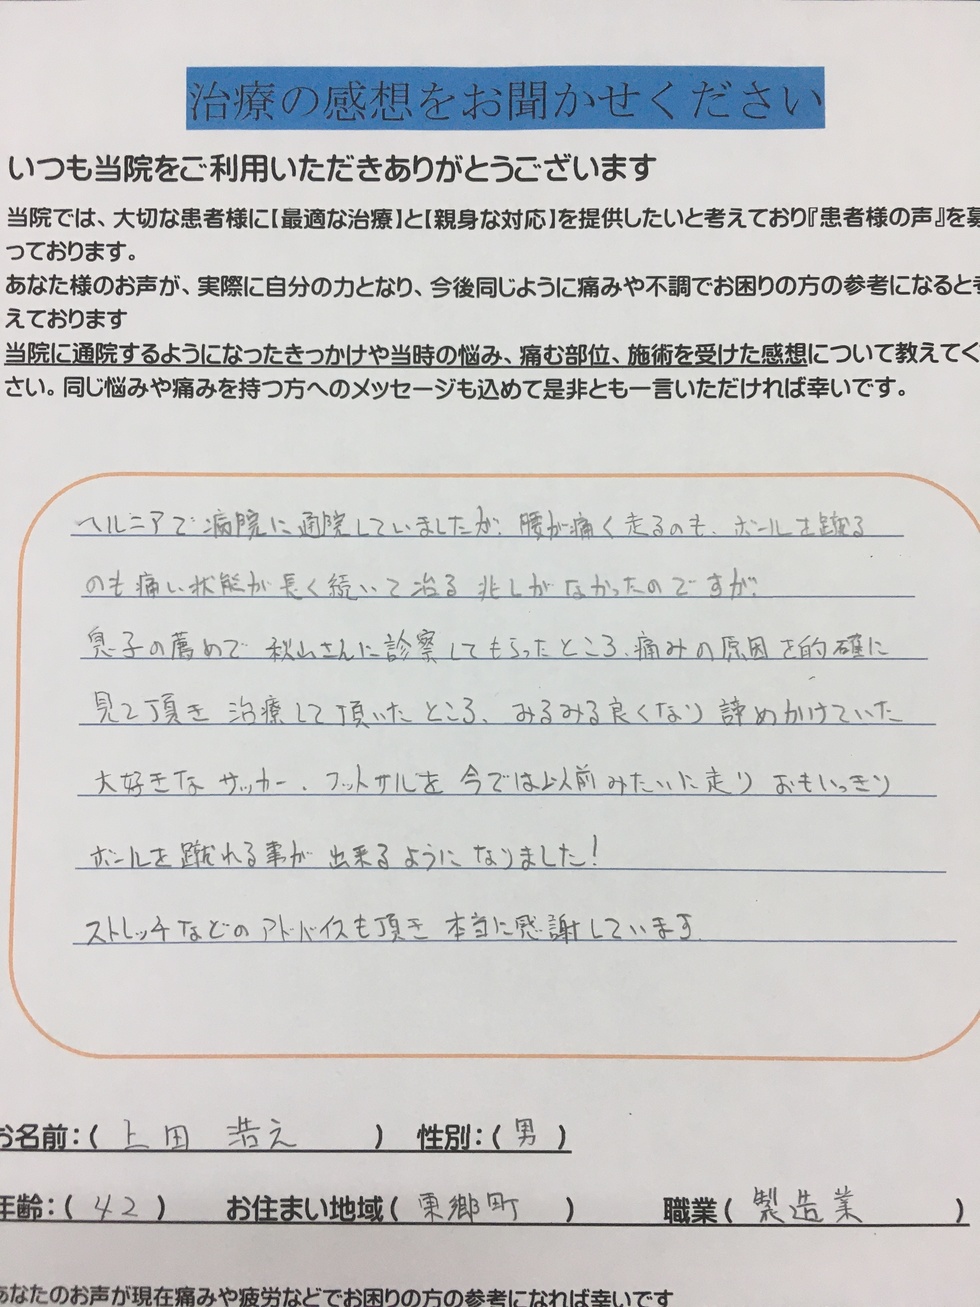 治療の感想をお聞かせください
いつも当院をご利用いただきありがとうございます
当院では、大切な患者様に【最適な治療】と【親身な対応】を提供したいと考えており『患者様の声』を募
っております。
あなた様のお声が、実際に自分の力となり、今後同じように痛みや不調でお困りの方の参考になると考
えております
当院に通院するようになったきっかけや当時の悩み、痛む部位、施術を受けた感想について教えてく
さい。同じ悩みや痛みを持つ方へのメッセージも込めて是非とも一言いただければ幸いです。
ヘルニアで病院に通院していましたが、腰が痛く走るのも、ボールを蹴る
のも痛い状態が長く続いて治る兆しがなかったのですが、
息子の薦めで秋山さんに診察してもらったところ、痛みの原因を的確に
見て頂き 治療して頂いたところ、みるみる良くなり 諦めかけていた
大好きなサッカー、フットサルを 今では以前みたいに走り おもいっきり
ボールを蹴れる事が 出来るようになりました!
ストレッチなどのアドバイスも頂き 本当に感謝しています。
お名前:( 上田 浩之 ) 性別:( 男 )
年齢:( 42 ) お住まい地域( 東郷町 ) 職業( 製造業 )
あなたのお声が現在痛みや疲労などでお困りの方の参考になれば幸いです